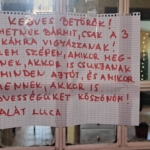 KEDVES BETÖRŐK!
HETNEK BÁRHIT, CSAK A 3
KÁHRA VIGYÁZZANAK!
EM SZÉPEN, AMIKOR MEG-
NEK, AKKOR IS CSUKJANAK
MINDEN AJTÓT, ÉS AMIKOR
MENNEK, AKKOR IS
VESSÉGÜKET KÖSZÖNÖM!
ALÁT LUCA